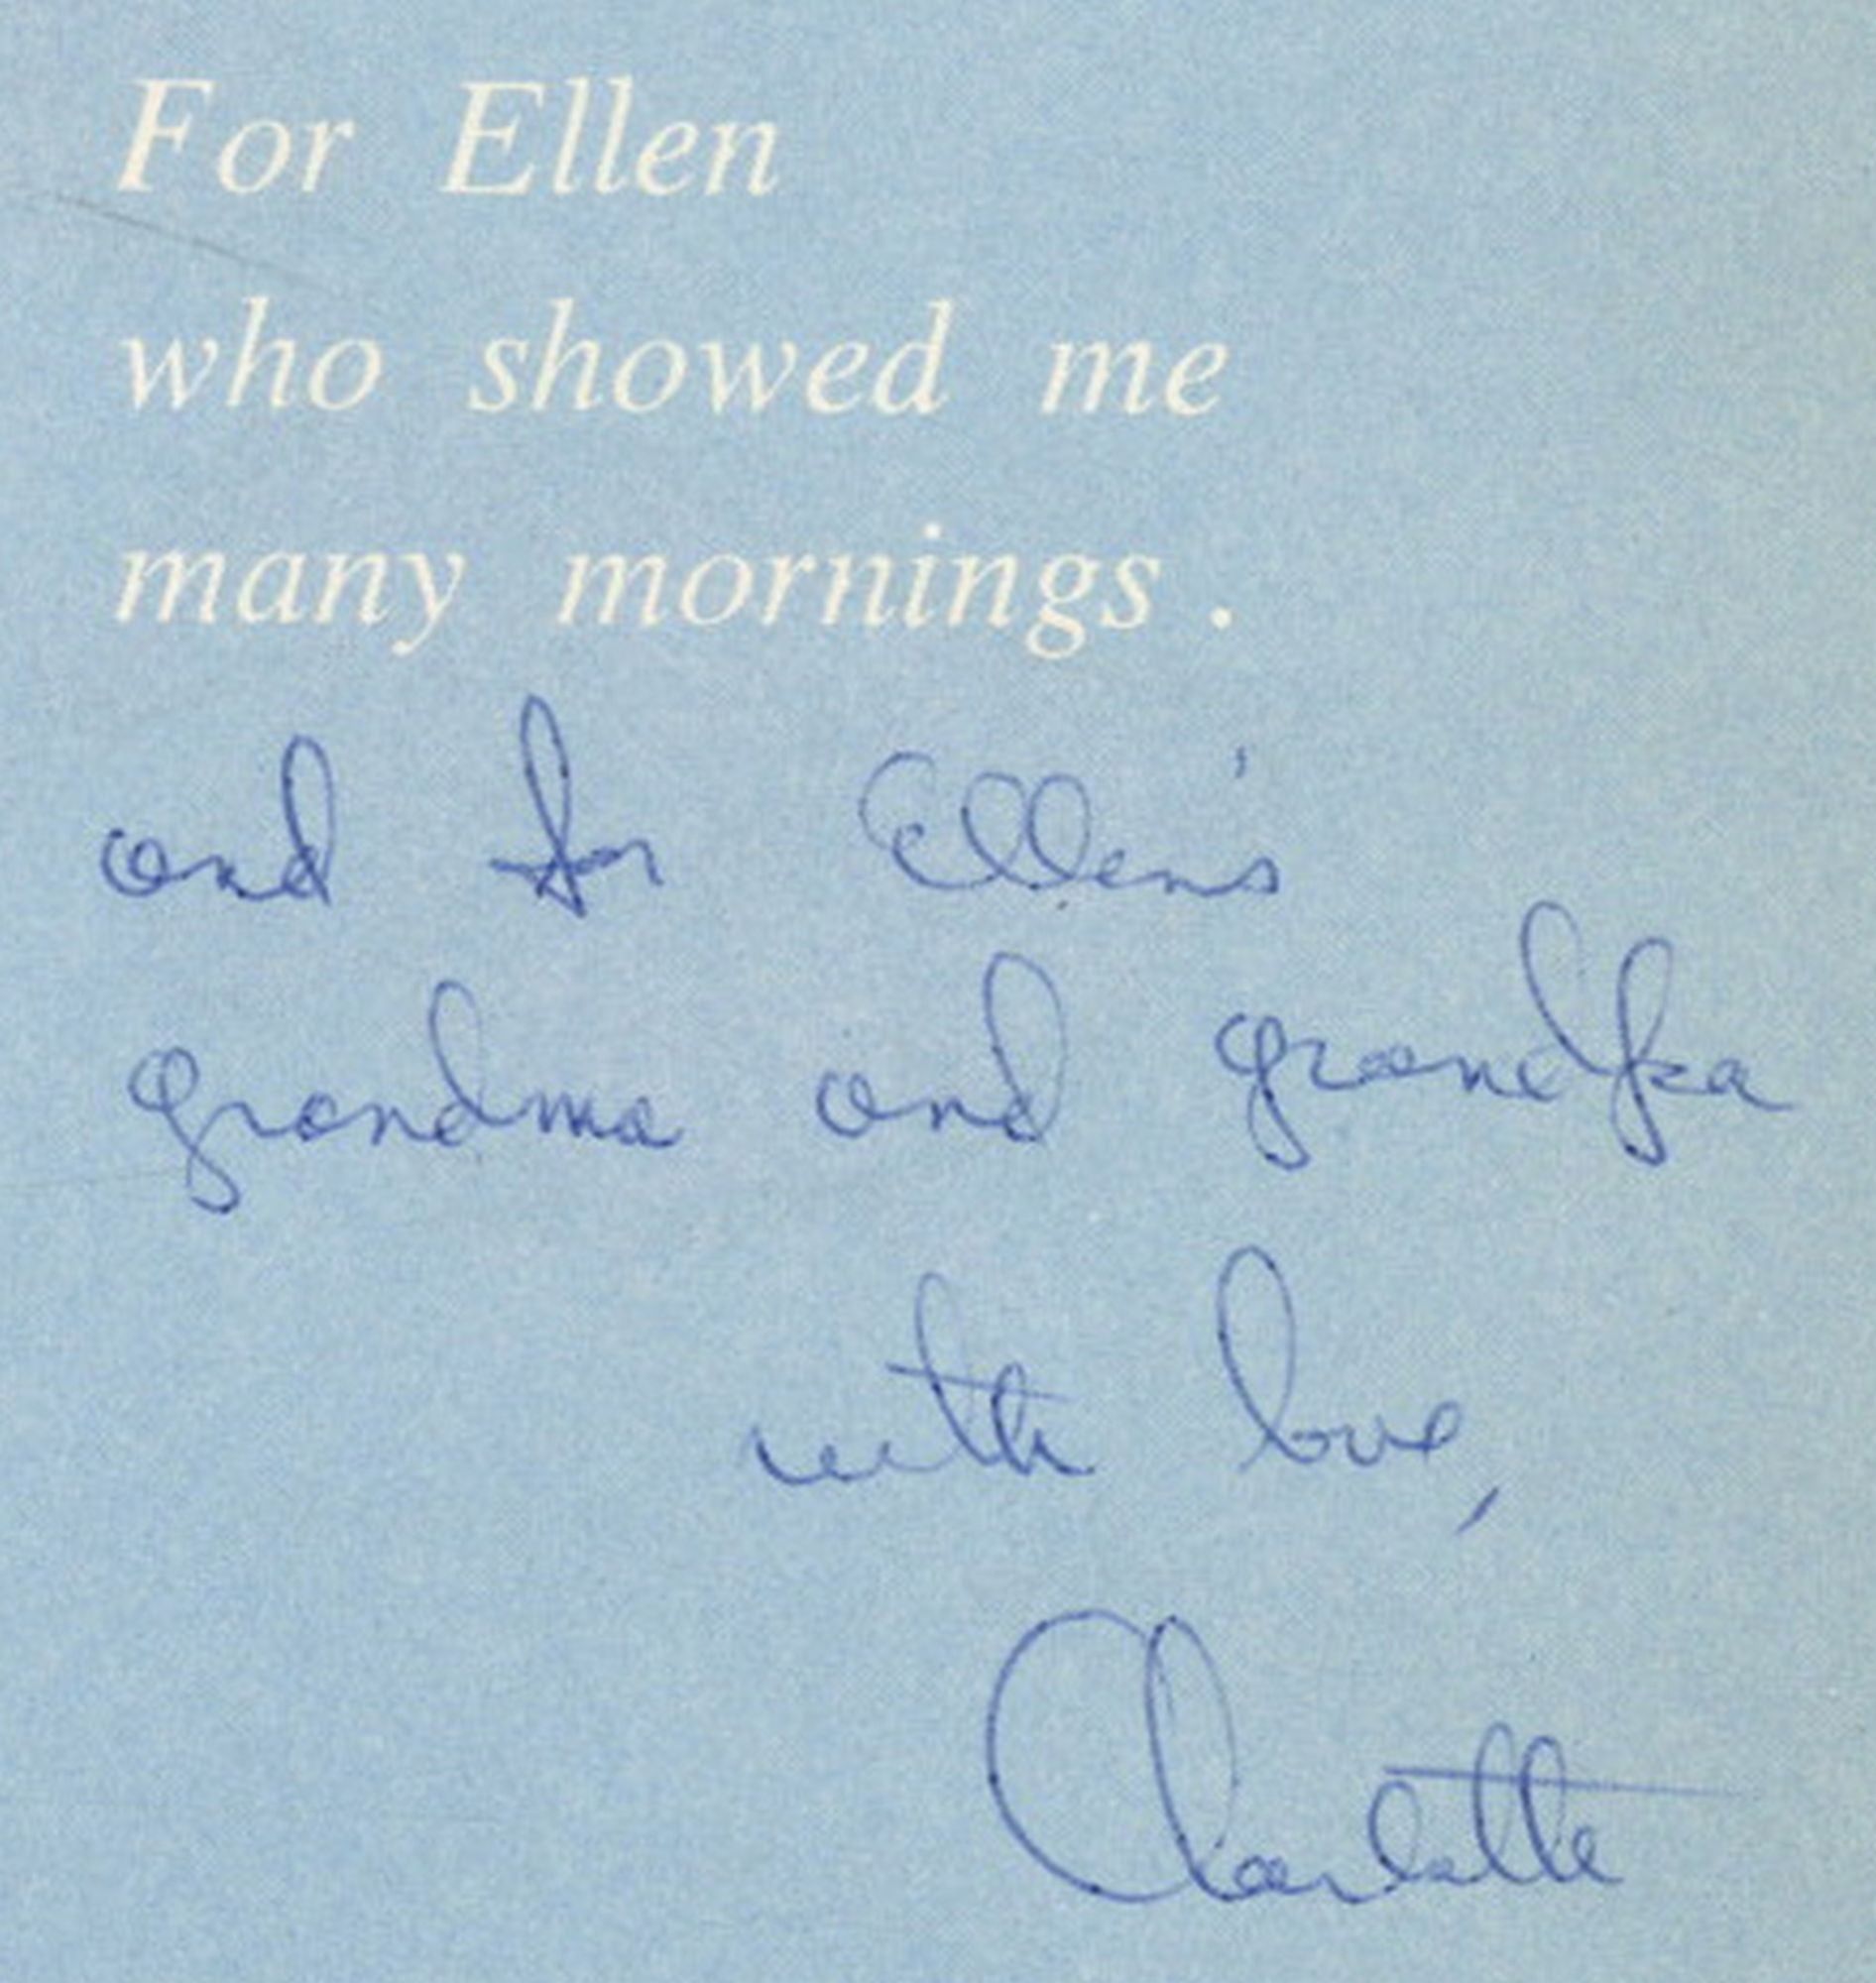 For Ellen
who showed me
many mornings .
and for Ellen's
grandma and grandpa
with love,
Charlotte